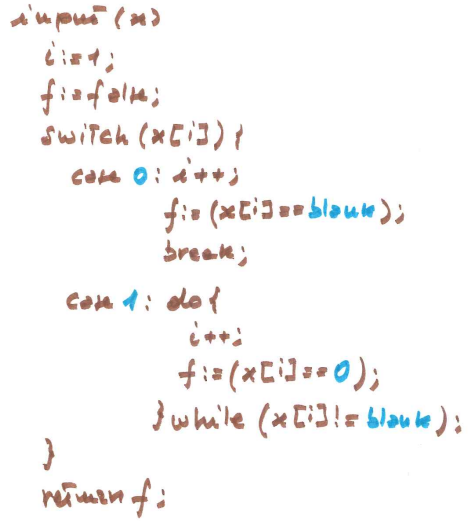 input (x)
i:=1;
f:=false;
switch (x[i]) {
case 0: i++;
f:=(x[i]==blank);
break;
case 1: do {
i++;
f:=(x[i]==0);
} while (x[i]!=blank);
}
return f;